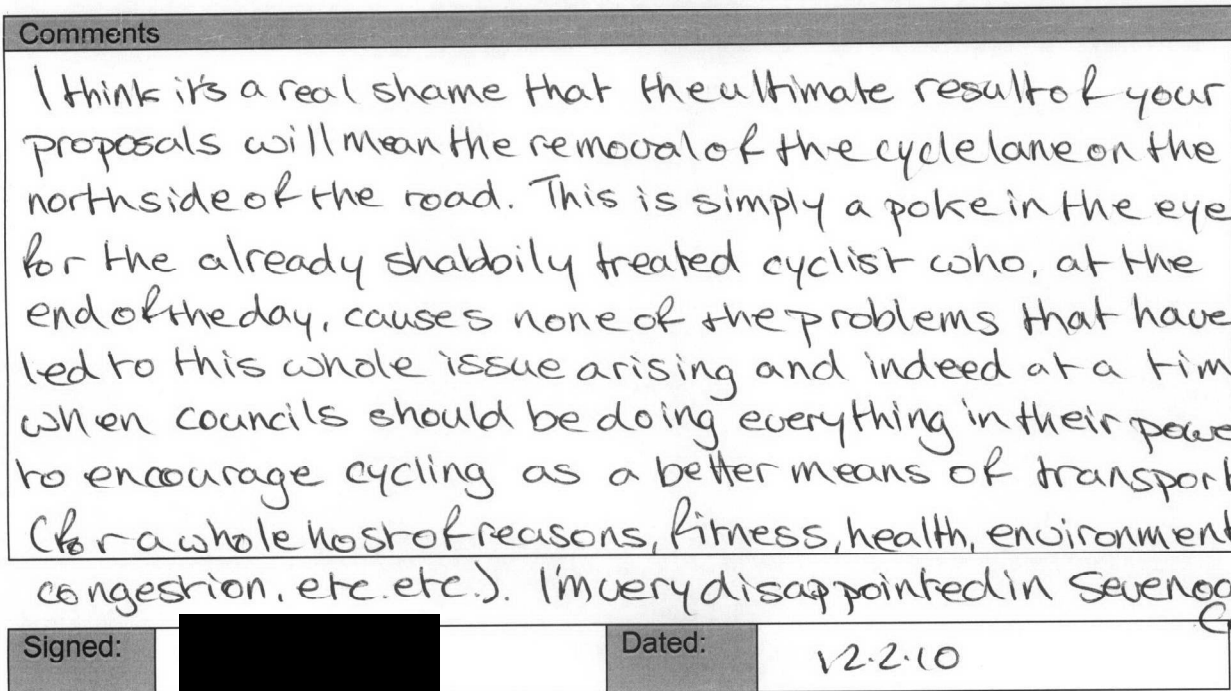 Comments
I think it's a real shame that the ultimate result of your
proposals will mean the removal of the cycle lane on the
north side of the road. This is simply a poke in the eye
for the already shabbily treated cyclist who, at the
end of the day, causes none of the problems that have
led to this whole issue arising and indeed at a tim
when councils should be doing everything in their powe
to encourage cycling as a better means of transport
(for a whole host of reasons, fitness, health, environment
congestion, etc. etc.). I'm very disappointed in Sevenoa
Signed:
Dated:
12.2.10